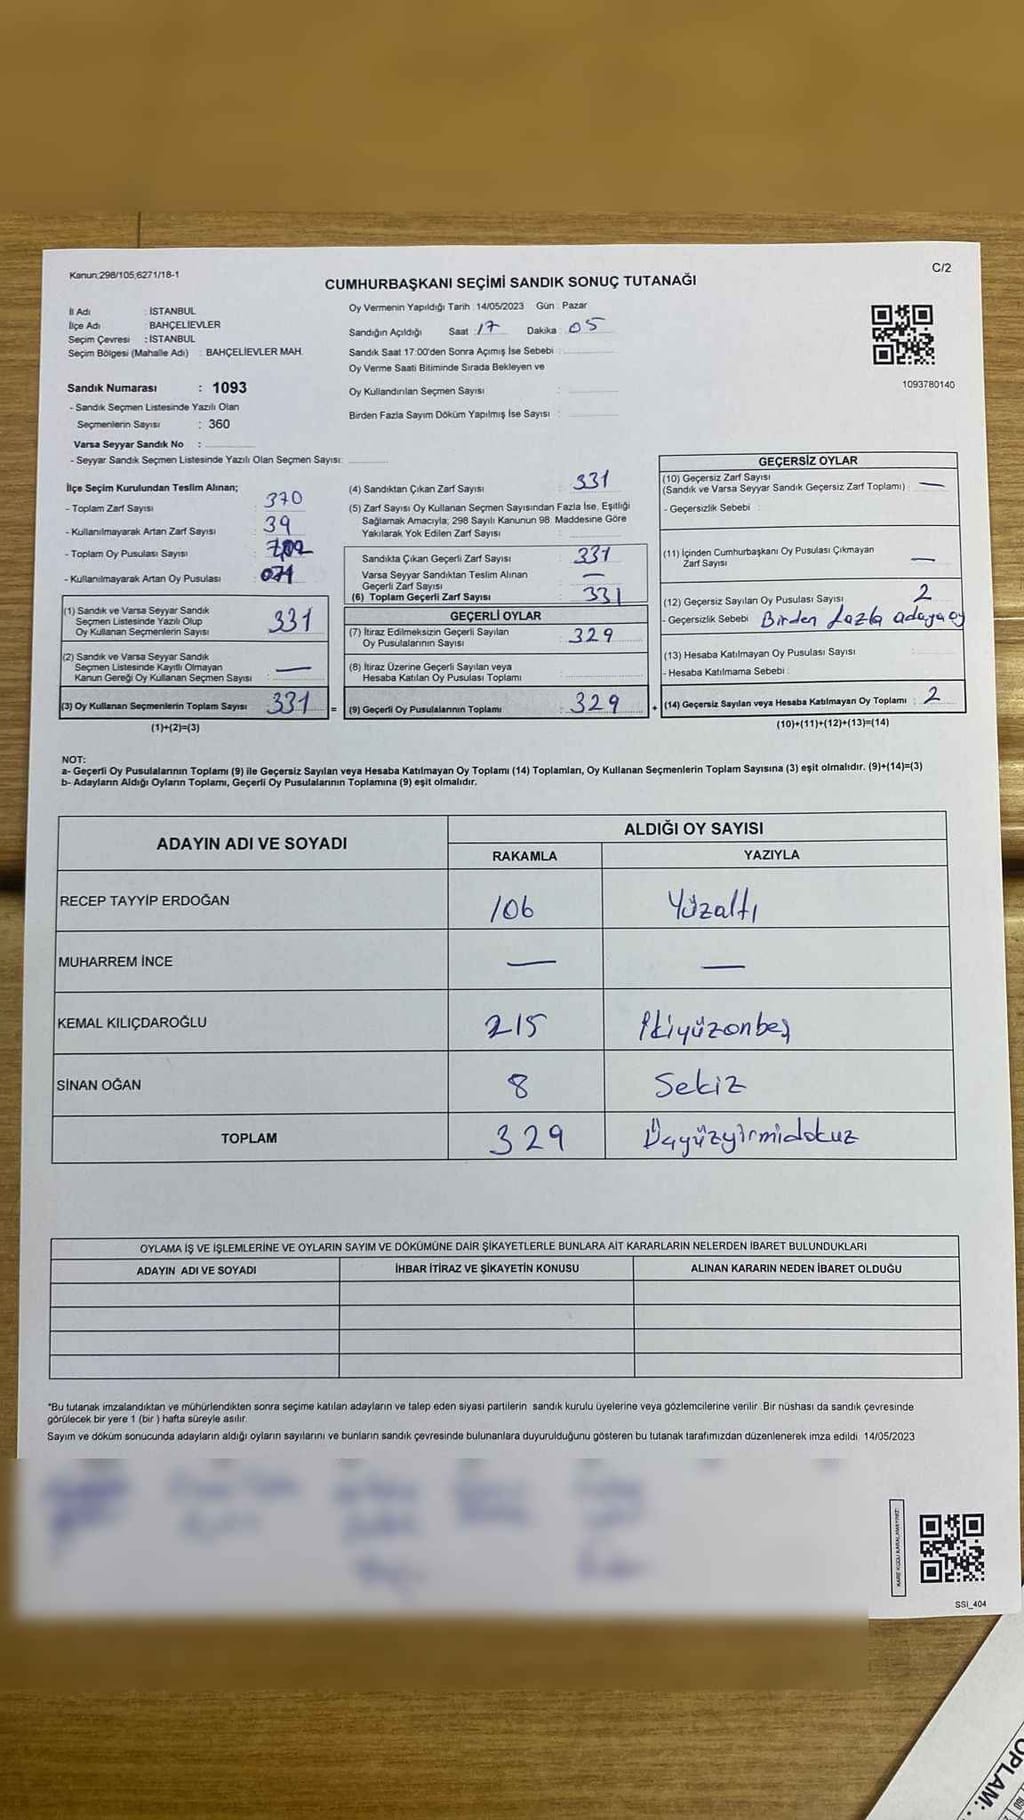 Kanun;298/105;6271/18-1
C/2
CUMHURBAŞKANI SEÇİMİ SANDIK SONUÇ TUTANAĞI
İl Adı : İSTANBUL
İlçe Adı : BAHÇELİEVLER
Seçim Çevresi : İSTANBUL
Seçim Bölgesi (Mahalle Adı) : BAHÇELİEVLER MAH.
Sandık Numarası : 1093
- Sandık Seçmen Listesinde Yazılı Olan
Seçmenlerin Sayısı : 360
Varsa Seyyar Sandık No :
- Seyyar Sandık Seçmen Listesinde Yazılı Olan Seçmen Sayısı:
Oy Vermenin Yapıldığı Tarih : 14/05/2023 Gün : Pazar
Sandığın Açıldığı Saat : 17 Dakika : 05
Sandık Saat 17:00'den Sonra Açımış İse Sebebi :
Oy Verme Saati Bitiminde Sırada Bekleyen ve
Oy Kullandırılan Seçmen Sayısı :
Birden Fazla Sayım Döküm Yapılmış İse Sayısı :
1093780140
İlçe Seçim Kurulundan Teslim Alınan;
- Toplam Zarf Sayısı : 370
- Kullanılmayarak Artan Zarf Sayısı : 39
- Toplam Oy Pusulası Sayısı :
- Kullanılmayarak Artan Oy Pusulası :
(1) Sandık ve Varsa Seyyar Sandık
Seçmen Listesinde Yazılı Olup
Oy Kullanan Seçmenlerin Sayısı : 331
(2) Sandık ve Varsa Seyyar Sandık
Seçmen Listesinde Kayıtlı Olmayan
Kanun Gereği Oy Kullanan Seçmen Sayısı : —
(3) Oy Kullanan Seçmenlerin Toplam Sayısı : 331
(1)+(2)=(3)
(4) Sandıktan Çıkan Zarf Sayısı : 331
(5) Zarf Sayısı Oy Kullanan Seçmen Sayısından Fazla İse, Eşitliği
Sağlamak Amacıyla; 298 Sayılı Kanunun 98. Maddesine Göre
Yakılarak Yok Edilen Zarf Sayısı :
Sandıkta Çıkan Geçerli Zarf Sayısı : 331
Varsa Seyyar Sandıktan Teslim Alınan
Geçerli Zarf Sayısı : —
(6) Toplam Geçerli Zarf Sayısı : 331
GEÇERLİ OYLAR
(7) İtiraz Edilmeksizin Geçerli Sayılan
Oy Pusulalarının Sayısı : 329
(8) İtiraz Üzerine Geçerli Sayılan veya
Hesaba Katılan Oy Pusulası Toplamı :
= (9) Geçerli Oy Pusulalarının Toplamı : 329
GEÇERSİZ OYLAR
(10) Geçersiz Zarf Sayısı
(Sandık ve Varsa Seyyar Sandık Geçersiz Zarf Toplamı) : —
- Geçersizlik Sebebi :
(11) İçinden Cumhurbaşkanı Oy Pusulası Çıkmayan
Zarf Sayısı : —
(12) Geçersiz Sayılan Oy Pusulası Sayısı : 2
- Geçersizlik Sebebi : Birden fazla adaya oy
(13) Hesaba Katılmayan Oy Pusulası Sayısı :
- Hesaba Katılmama Sebebi :
+ (14) Geçersiz Sayılan veya Hesaba Katılmayan Oy Toplamı : 2
(10)+(11)+(12)+(13)=(14)
NOT:
a- Geçerli Oy Pusulalarının Toplamı (9) ile Geçersiz Sayılan veya Hesaba Katılmayan Oy Toplamı (14) Toplamları, Oy Kullanan Seçmenlerin Toplam Sayısına (3) eşit olmalıdır. (9)+(14)=(3)
b- Adayların Aldığı Oyların Toplamı, Geçerli Oy Pusulalarının Toplamına (9) eşit olmalıdır.
ADAYIN ADI VE SOYADI
ALDIĞI OY SAYISI
RAKAMLA YAZIYLA
RECEP TAYYİP ERDOĞAN 106 Yüzaltı
MUHARREM İNCE — —
KEMAL KILIÇDAROĞLU 215 İkiyüzonbeş
SİNAN OĞAN 8 Sekiz
TOPLAM 329 Üçyüzyirmidokuz
OYLAMA İŞ VE İŞLEMLERİNE VE OYLARIN SAYIM VE DÖKÜMÜNE DAİR ŞİKAYETLERLE BUNLARA AİT KARARLARIN NELERDEN İBARET BULUNDUKLARI
ADAYIN ADI VE SOYADI İHBAR İTİRAZ VE ŞİKAYETİN KONUSU ALINAN KARARIN NEDEN İBARET OLDUĞU
*Bu tutanak imzalandıktan ve mühürlendikten sonra seçime katılan adayların ve talep eden siyasi partilerin sandık kurulu üyelerine veya gözlemcilerine verilir. Bir nüshası da sandık çevresinde
görülecek bir yere 1 (bir ) hafta süreyle asılır.
Sayım ve döküm sonucunda adayların aldığı oyların sayılarını ve bunların sandık çevresinde bulunanlara duyurulduğunu gösteren bu tutanak tarafımızdan düzenlenerek imza edildi. 14/05/2023
SSI_404
OPLAM